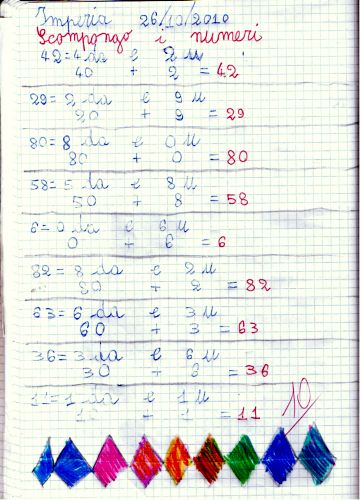 Imperia 26/10/2010
Scompongo i numeri
42=4 da e 2 u
40 + 2 = 42
29=2 da e 9 u
20 + 9 = 29
80=8 da e 0 u
80 + 0 = 80
58=5 da e 8 u
50 + 8 = 58
6=0 da e 6 u
0 + 6 = 6
82=8 da e 2 u
80 + 2 = 82
63=6 da e 3 u
60 + 3 = 63
36=3 da e 6 u
30 + 6 = 36
11=1 da e 1 u
10 + 1 = 11
10